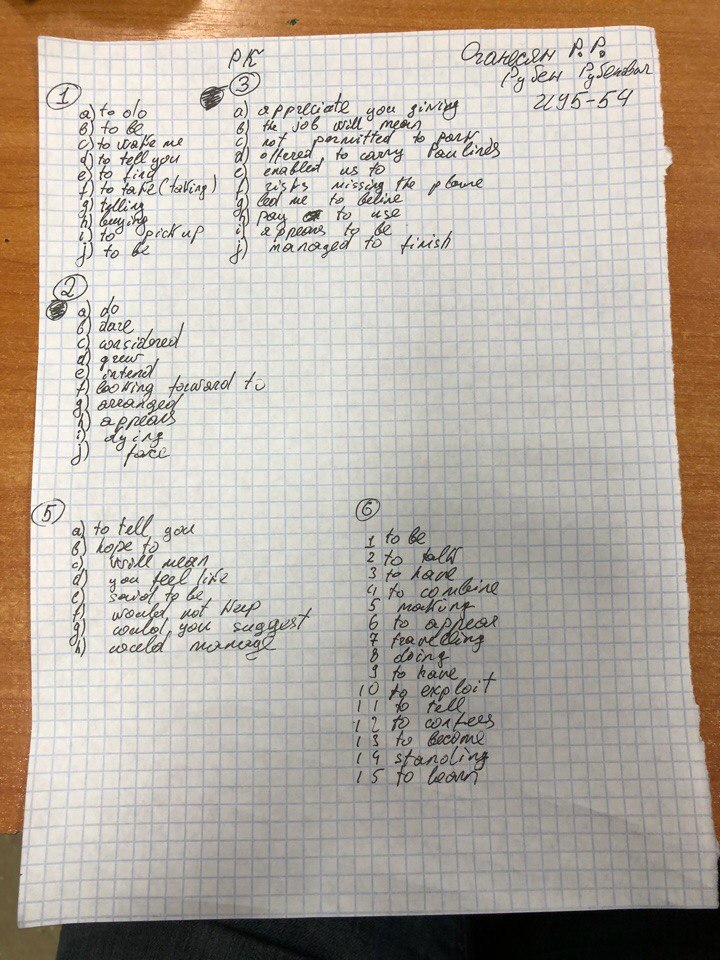 РК
Оганесян Р. Р.
Рубен Рубенович
ИУ5-54
1
a) to do
b) to be
c) to wake me
d) to tell you
e) to find
f) to take (taking)
g) telling
h) buying
i) to pick up
j) to be
3
a) appreciate you giving
b) the job will mean
c) not permitted to park
d) offered to carry Pauline's
e) enabled us to
f) risks missing the plane
g) led me to belive
h) pay to use
i) appears to be
j) managed to finish
2
a) do
b) dare
c) considered
d) grew
e) intend
f) looking forward to
g) arranged
h) appears
i) dying
j) face
5
a) to tell you
b) hope to
c) will mean
d) you feel like
e) said to be
f) would not help
g) would you suggest
h) would manage
6
1 to be
2 to talk
3 to have
4 to combine
5 making
6 to appear
7 travelling
8 doing
9 to have
10 to exploit
11 to tell
12 to confess
13 to become
14 standing
15 to learn